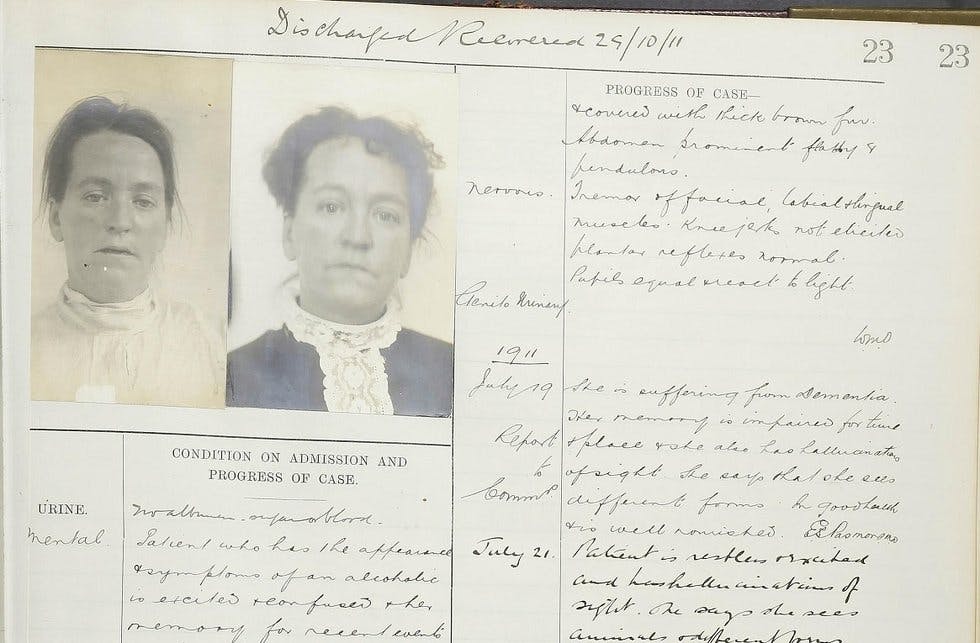 Discharged Recovered 29/10/11
23
23
CONDITION ON ADMISSION AND
PROGRESS OF CASE.
URINE.
No albumen - sugar or blood.
Mental.
Patient who has the appearance
& symptoms of an alcoholic
is excited & confused & her
memory for recent events
PROGRESS OF CASE—
& covered with thick brown fur.
Abdomen prominent flabby &
pendulous.
Nervous.
Tremor of facial, labial & lingual
muscles. Knee jerks not elicited
plantar reflexes normal.
Pupils equal & react to light.
Genito Urinary.
1911
July 19
She is suffering from Dementia.
Her memory is impaired for time
Report
& place & she also has hallucinations
to
of sight. She says that she sees
Commrs.
different forms. In good health
& is well nourished.
July 21.
Patient is restless & excited
and has hallucinations of
sight. She says she sees
animals & different forms